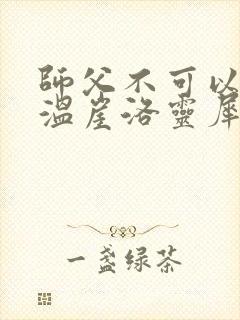 師父不可以
溫崖洛靈犀
一盏绿茶